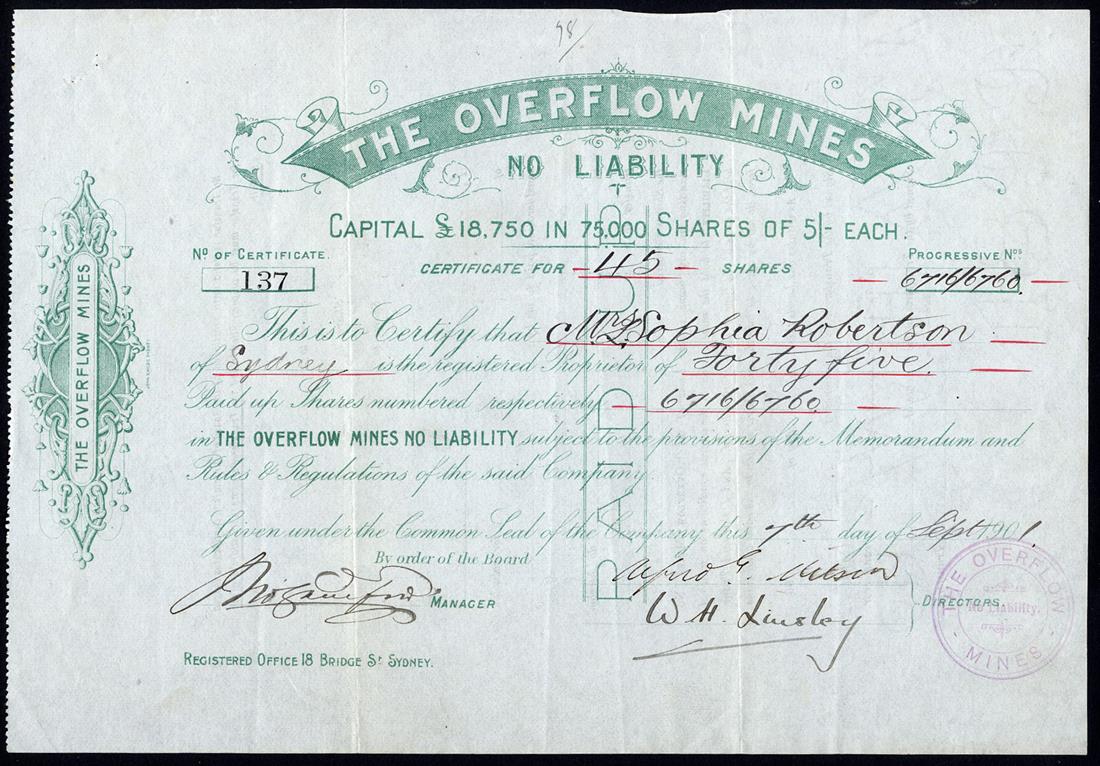 98/
THE OVERFLOW MINES
NO LIABILITY
CAPITAL £18,750 IN 75,000 SHARES OF 5/- EACH.
No OF CERTIFICATE.
137
CERTIFICATE FOR -45- SHARES
PROGRESSIVE Nos
6716/6760.
This is to Certify that Mrs Sophia Robertson
of Sydney is the registered Proprietor of Forty five.
Paid up Shares numbered respectively 6716/6760.
in THE OVERFLOW MINES NO LIABILITY subject to the provisions of the Memorandum and
Rules & Regulations of the said Company
Given under the Common Seal of the Company this 7th day of Sept 1901.
By order of the Board
MANAGER
Alfred G. Milson
W H. Linsley
DIRECTORS.
REGISTERED OFFICE 18 BRIDGE ST SYDNEY.
THE OVERFLOW MINES
PAID UP
THE OVERFLOW
No Liability.
MINES